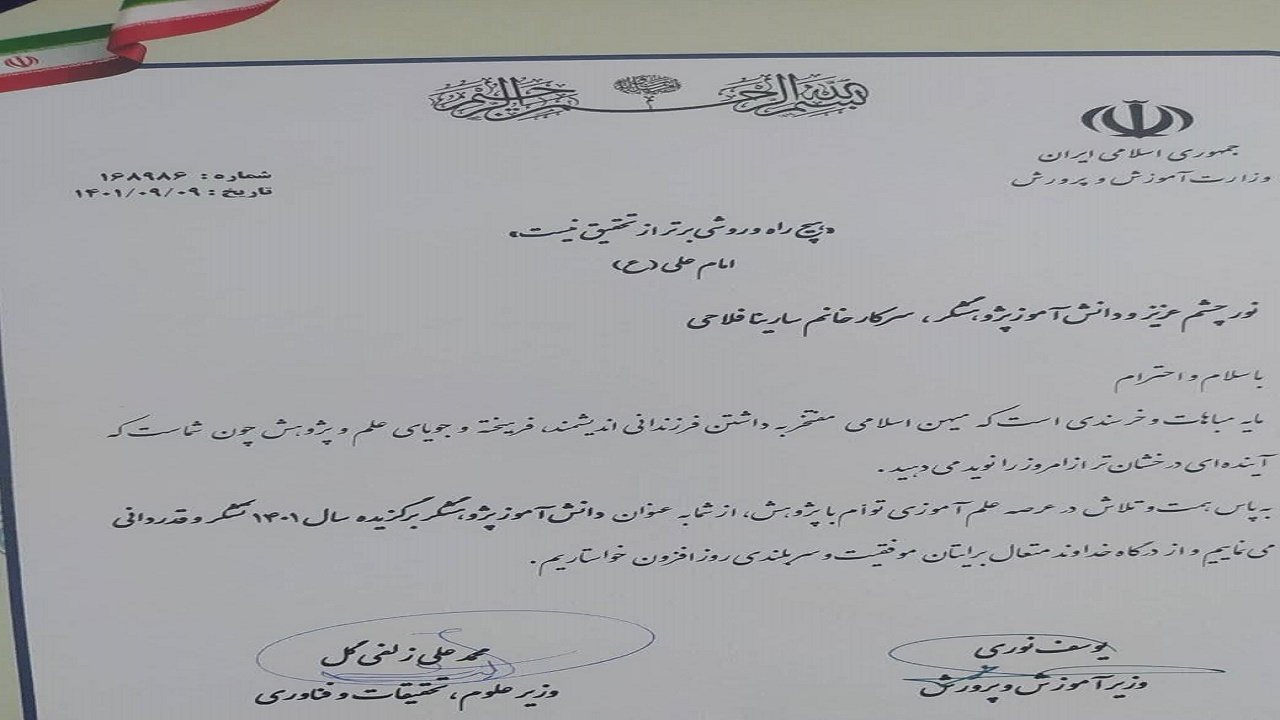 بسم الله الرحمن الرحیم
جمهوری اسلامی ایران
وزارت آموزش و پرورش
شماره : ۱۶۸۹۸۶
تاریخ : ۱۴۰۱/۰۹/۰۹
«هیچ راه و روشی برتر از تحقیق نیست»
امام علی (ع)
نور چشم عزیز و دانش آموز پژوهشگر، سرکار خانم سارینا فلاحی
با سلام و احترام
مایه مباهات و خرسندی است که میهن اسلامی مفتخر به داشتن فرزندانی اندیشمند، فریخته و جویای علم و پژوهش چون شماست که
آینده ای درخشان تر از امروز را نوید می دهید.
به پاس همت و تلاش در عرصه علم آموزی توأم با پژوهش، از شما به عنوان دانش آموز پژوهشگر برگزیده سال ۱۴۰۱ تشکر و قدردانی
می نماییم و از درگاه خداوند متعال برایتان موفقیت و سربلندی روز افزون خواستاریم.
یوسف نوری
وزیر آموزش و پرورش
محمد علی زلفی گل
وزیر علوم، تحقیقات و فناوری